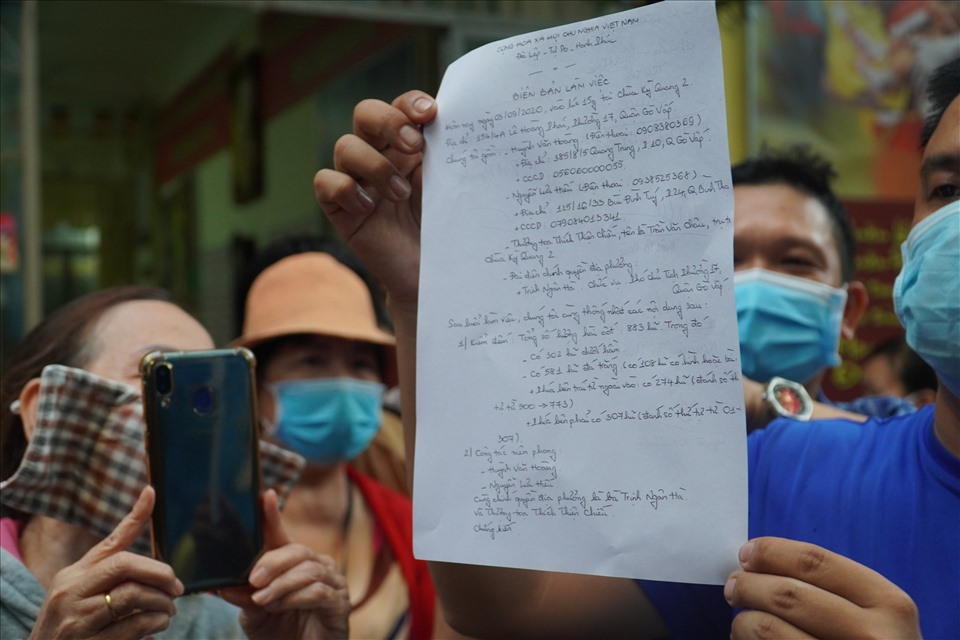 CỘNG HÒA XÃ HỘI CHỦ NGHĨA VIỆT NAM
Độc Lập - Tự Do - Hạnh Phúc
BIÊN BẢN LÀM VIỆC
Hôm nay ngày 03/09/2020, vào lúc 15g tại Chùa Kỳ Quang 2
Địa chỉ: 154/4A Lê Hoàng Phái, Phường 17, Quận Gò Vấp
Chúng tôi gồm: - Huỳnh Văn Hoàng (Điện thoại: 0908380369)
+ Địa chỉ: 185/8/5 Quang Trung, P.10, Q Gò Vấp.
+ CCCD 056060000055
- Nguyễn Lưu Hiếu (Điện thoại: 0938525368) -
+ Địa chỉ 115/16/33 Bùi Đình Tuý, P.24, Q. Bình Thạ
+ CCCD: 079084013341
- Thượng tọa Thích Thiện Chiếu, tên là Trần Văn Chiêu, trụ trì
Chùa Kỳ Quang 2
- Đại diện chính quyền địa phương:
+ Trịnh Ngân Hà Chức vụ: Phó chủ Tịch Phường 17,
Quận Gò Vấp
Sau buổi làm việc, chúng tôi cùng thống nhất các nội dung sau:
1/ Kiểm đếm: Tổng số lượng hũ cốt: 883 hũ. Trong đó
- Có 302 hũ dưới hầm
- Có 581 hũ đá trắng (có 108 hũ có hình hoặc tê
+ Phía bên trái từ ngoài vào: có 274 hũ (đánh số th
tự từ 500 → 773)
+ Phía bên phải có 307 hũ (đánh số thứ tự từ 01-
307).
2/ Công tác niêm phong:
- Huỳnh Văn Hoàng
- Nguyễn Lưu Hiếu
Cùng chính quyền địa phương là bà Trịnh Ngân Hà
Và Thượng tọa Thích Thiện Chiếu.
Chứng kiến